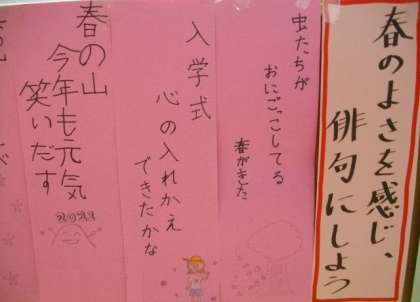 春のよさを感じ、
俳句にしよう
虫たちが
おにごっこしてる
春がきた
入学式
心の入れかえ
できたかな
春の山
今年も元気
笑いだす